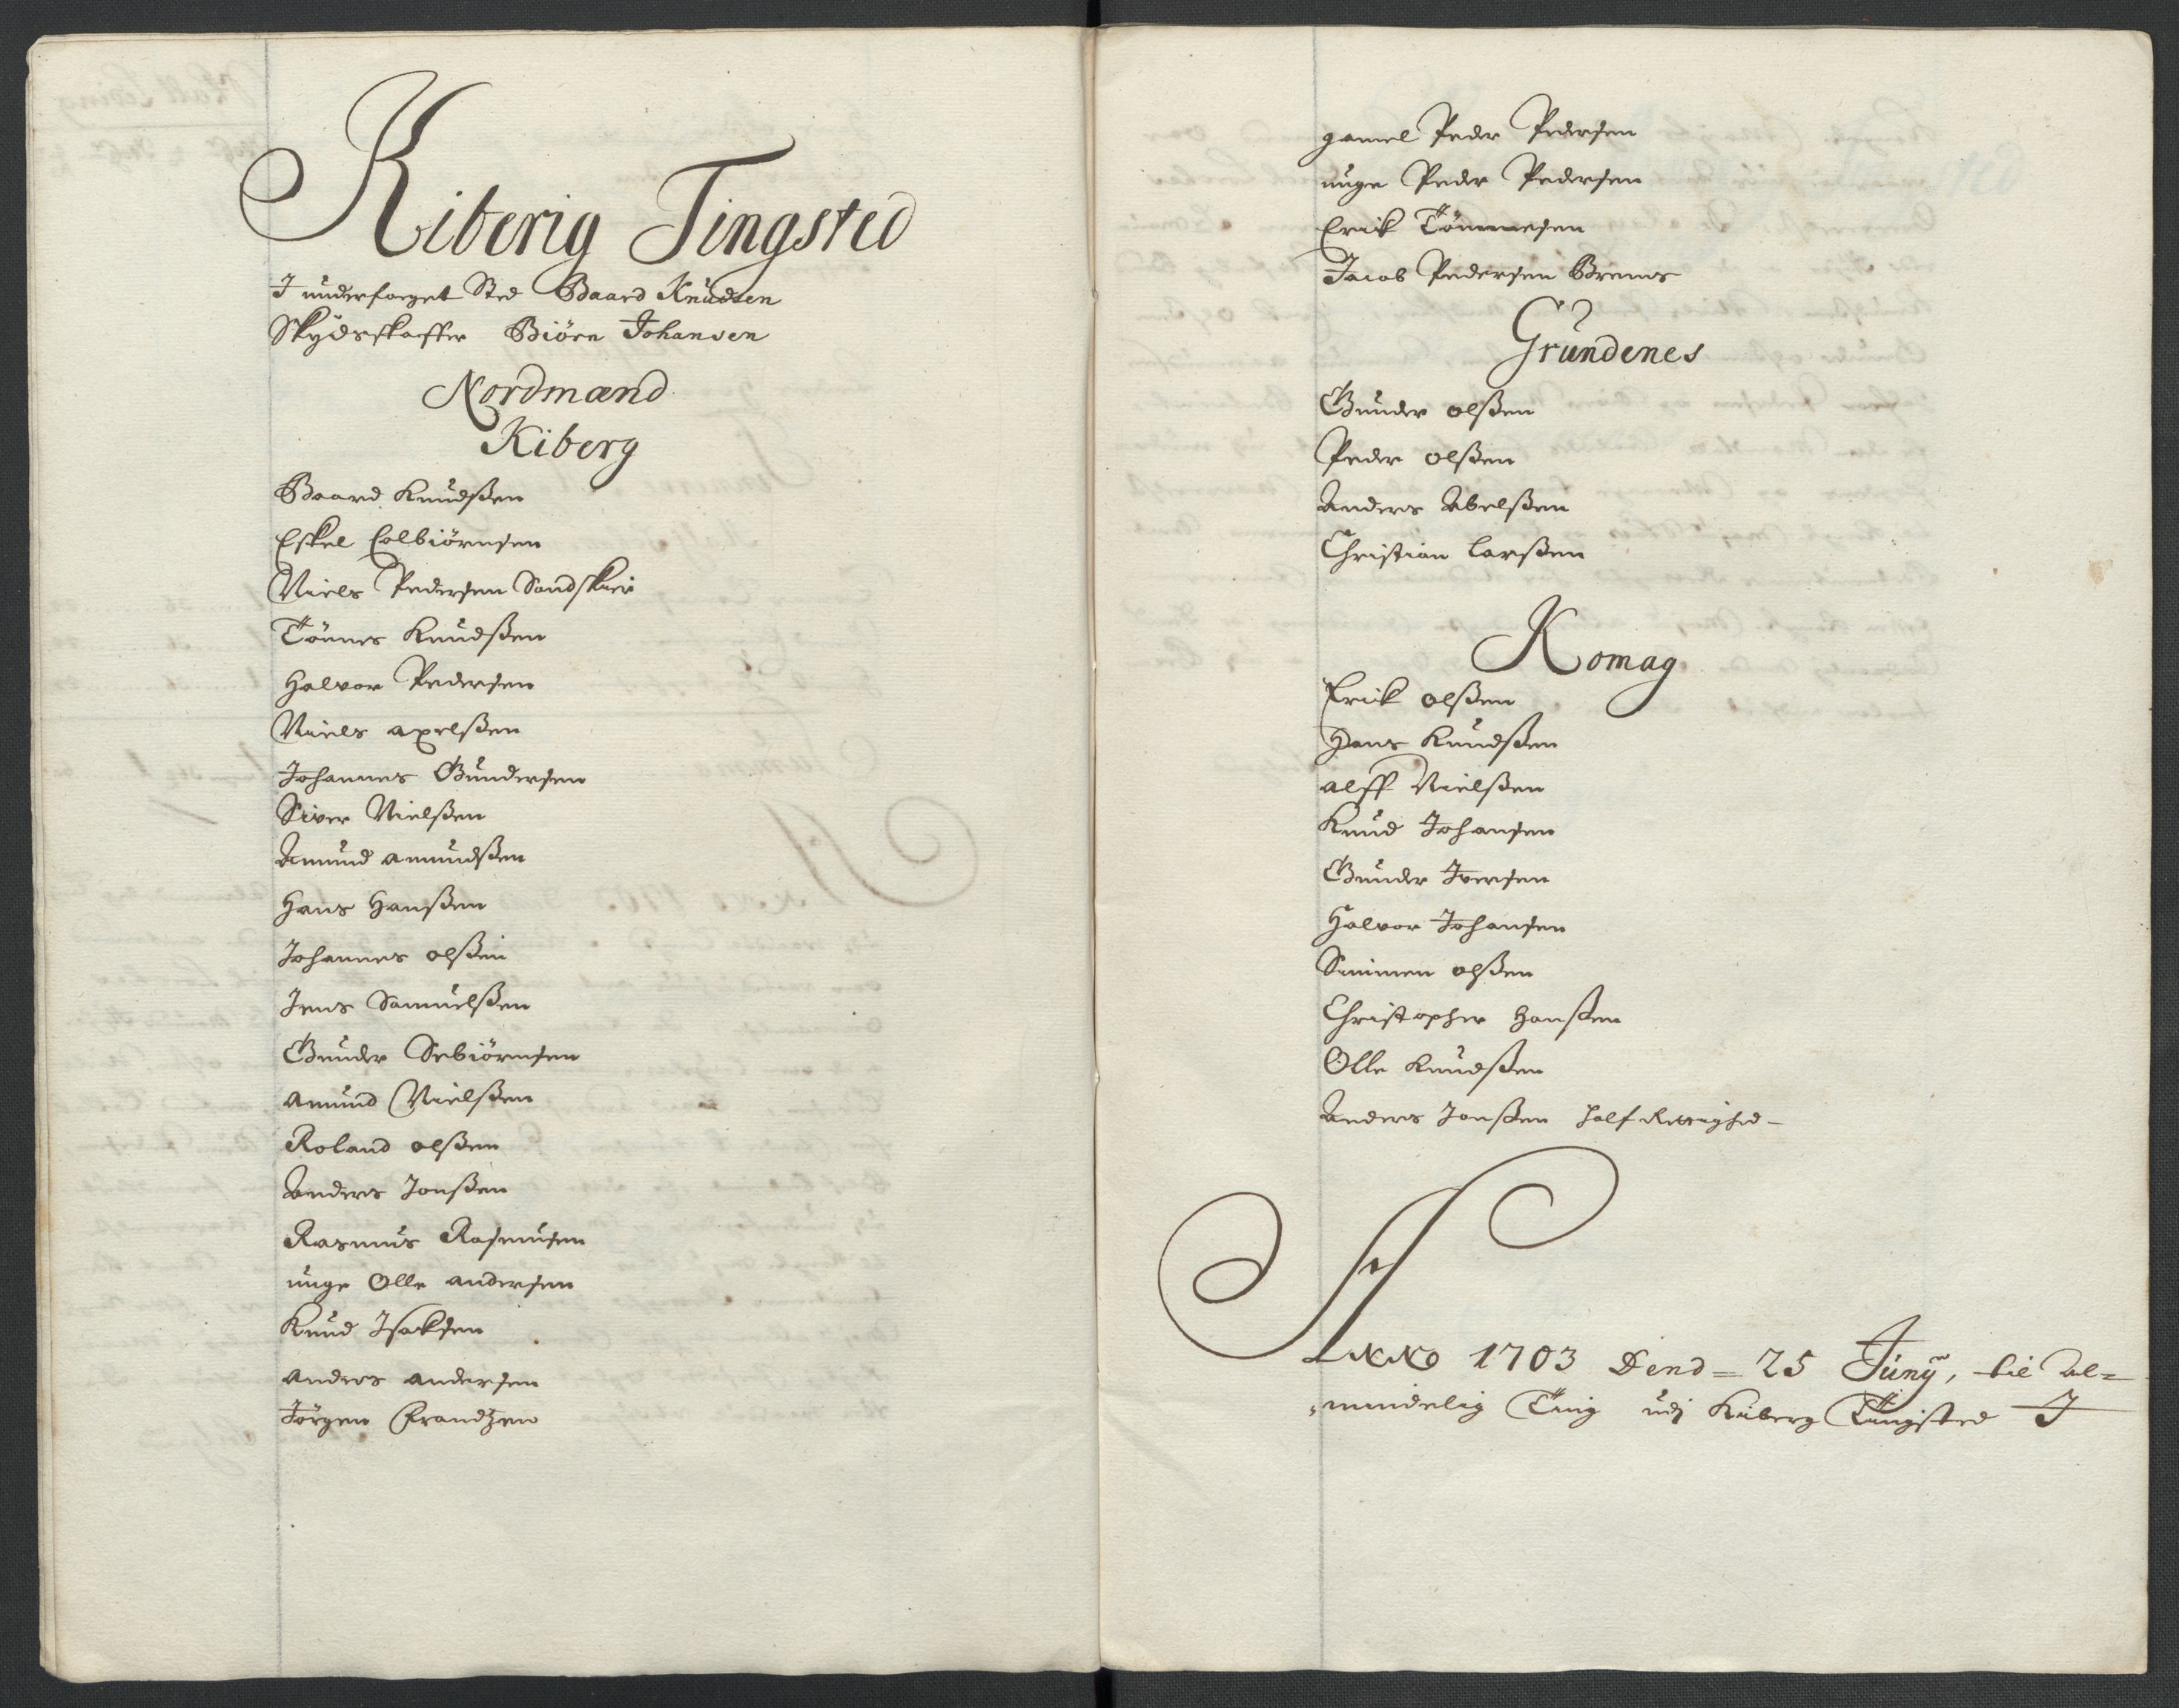 Kiberig Tingsted
I underfoget Sted Baard Knudsen
Skydsskaffer Biörn Johansen
Nordmænd
Kiberg
Baard Knudßen
Eskel Colbiörnsen
Niels Pedersen Sandskier
Tönnes Knudßen
Halvor Pedersen
Niels Axelßen
Johannes Gundersen
Siver Nielßen
Amund Amundßen
Hans Hanßen
Johannes olßen
Jens Samuelßen
Gunder Sebiörnsen
Amund Nielßen
Roland olßen
Anders Jonßen
Rasmus Rasmusen
unge Olle Andersen
Knud Isaksen
Anders Andersen
Jörgen Frandtzen
gamel Peder Pedersen
unge Peder Pedersen
Erik Tönnesen
Jacob Pedersen Brems
Grundenes
Gunder olßen
Peder olßen
Anders Abelßen
Christian Larßen
Komag
Erik olßen
Hans Knudßen
Alff Nielßen
Knud Johansen
Gunder Iversen
Halvor Johansen
Simmen olßen
Christopher Hanßen
Olle Knudßen
Anders Jonßen half Rettighed -
Anno 1703 Dend = 25 Juny, til Al=
mindelig Ting udj Kiberg Tingsted I